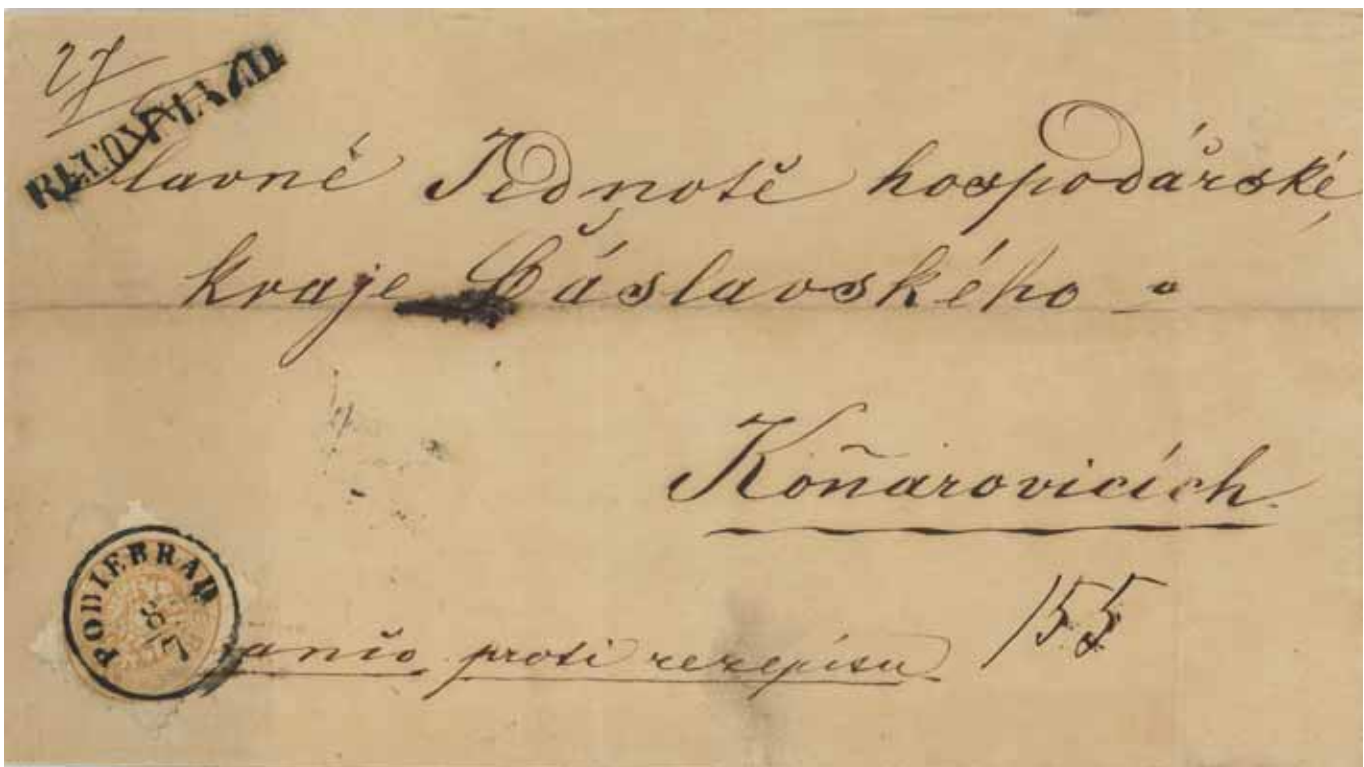 27
RECOMMAND.
Slavné Jednotě hospodářské
kraje Čáslavského
Koňarovicích
PODIEBRAD
8/7
franco proti recepisu
155